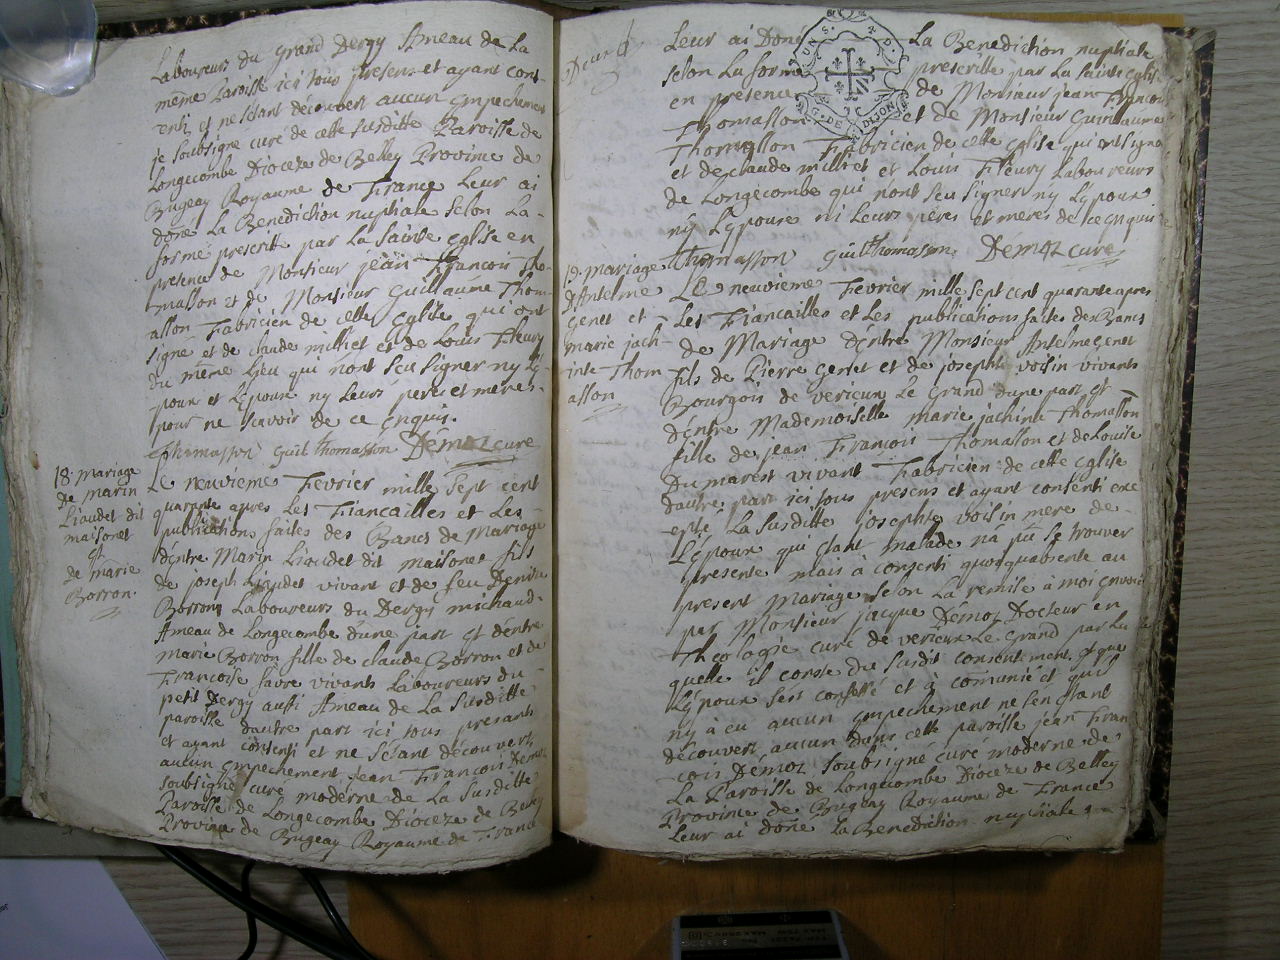 Laboureurs du grand Dergy Ameau de La
même Paroisse ici tous presens et ayant cont-
enti et ne setant découvert aucun Empechement
je soubsigné curé de cette susditte Paroisse de
Longecombe Diocèze de Belley Province de
Bugeay Royaume de France Leur ai
doné La Benediction nuptiale selon La-
forme prescrit par La sainte Eglise en
presence de Monsieur jean François tho-
masson et de Monsieur Guillaume Thom-
asson Fabricien de cette Eglise qui ont
signé et de claude milliet et de Louis Fleury
du même Lieu qui nont seu signer ny L'é-
poux et L'épouse ny Leurs père et meres-
pour ne scavoir de ce Enquis.
Thomasson guil thomasson Démoz curé
18. mariage
de marin
Liaudet dit
maisonet
et
de marie
Borron.
Le neuvieme Fevrier mille sept cent
quarante apres Les Fiancailles et Les-
publications faites des Bancs de Mariage
dentre Marin Liaudet dit maisonet fils
de joseph Liaudet vivant et de feu Denise
Borron Laboureurs du Dergy michaud-
Ameau de Longecombe d'une part Et dentre
marie Borron fille de claude Borron et de
Françoise favre vivants Laboureurs du
petit Dergy aussi Ameau de La susditte
paroisse dautre part ici tous presants
et ayant consenti et ne setant découvert
aucun Empechement jean François Demoz
soubsigné curé moderne de La susditte
Paroisse de Longecombe Diocèze de Belley
Province de Bugeay Royaume de France
Leur ai Doné La Benediction nuptiale
selon La forme prescritte par La sainte Eglise
en presence de Monsieur jean François
Thomasson et de Monsieur Guillaume
Thomasson Fabricien de cette Eglise qui ont signé
et de claude milliet et Louis Fleury Laboureurs
de Longecombe qui nont seu signer ny L'époux
ny L'épouse ni Leurs pères et meres de ce Enquis
Thomasson guil thomasson Démoz curé
G. DE DIJON
19. mariage
d'Antelme
Genet et
marie jach-
inte Thom
asson
Le neuvieme Fevrier mille sept cent quarante apres
Les Fiancailles et Les publications faites des Bancs
de Mariage dentre Monsieur Antelme Genet
fils de Pierre Genet et de josephte voisin vivants
Bourgois de virieux Le Grand dune part et
dentre Mademoiselle marie jachinte Thomasson
fille de jean François Thomasson et de Louise
Dumarest vivant Fabricien de cette Eglise
dautre part ici tous presens et ayant consenti exc
epté La susditte josephte voisin mere de-
L'époux qui étant malade na pu se trouver
presente mais à consenti quoyquabsente au
present Mariage selon La remise à moi envoié
par Monsieur jacque Démoz Docteur en
Theologie curé de virieux Le Grand par La
quelle il conste du susdit consentement et que
L'époux sest confessé et à comunié et quil
ny à eu aucun Empechement ne s'en étant
découvert aucun dans cette paroisse jean Fran
çois Démoz soubsigné curé moderne de
La Paroisse de Longecombe Diocèze de Belley
Province de Bugeay Royaume de France
Leur ai doné La Benediction nuptiale